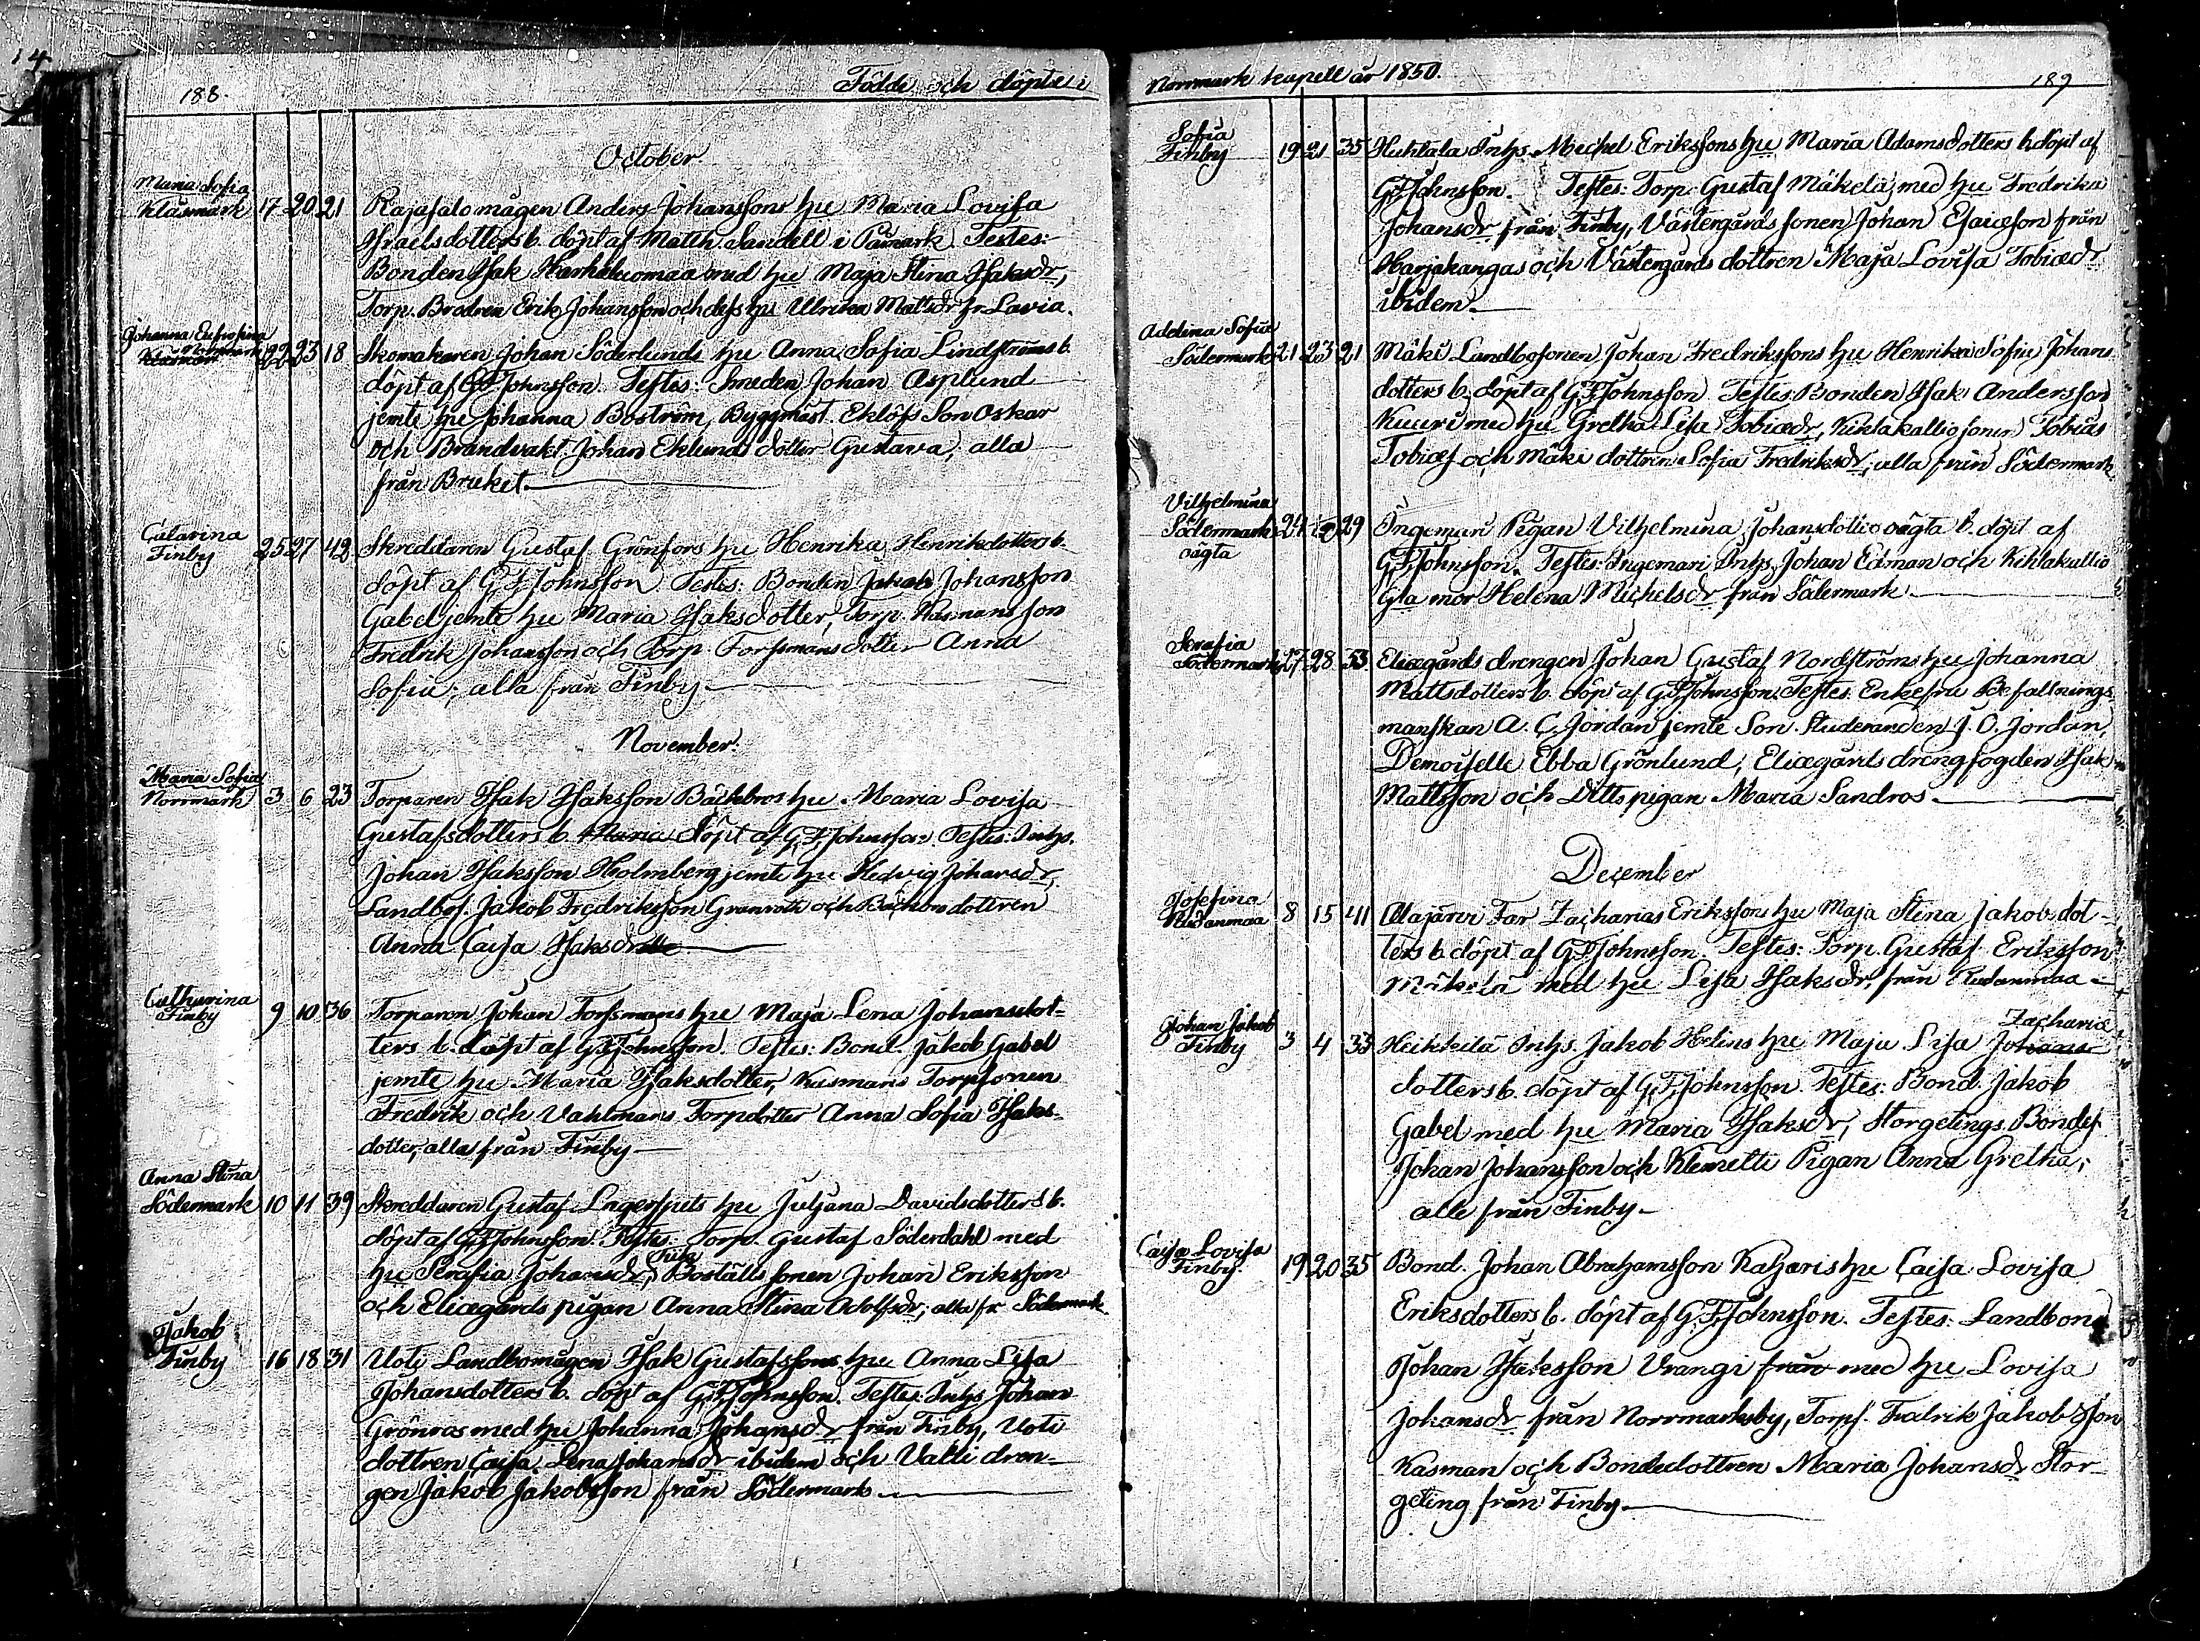 14
188.
Födde och döpte i
October
Maria Sofia
Klåsmark 17 20 21 Rajasalo mågen Anders Johanssons hu Maria Lovisa
Israelsdotters b. döpt af Matth. Sandell i Påmark. Testes:
Bonden Isak med hu Maja Stina Isaksdr,
Torp. Brodren Erik Johansson och dess hu Ulrika Mattsdr fr. Lavia.
Johanna Eufrosina
Norrmark 22 23 18 Skomakaren Johan Söderlunds hu Anna Sofia Lindströms b.
döpt af G F Johnsson. Testes: Smeden Johan Asplund
jemte hu Johanna Boström, Byggmäst. Eklöfs Son Oskar
och Brandvakt. Johan Eklunds dotter Gustava, alla
från Bruket.
Catarina
Finby 25 27 42 Skreddaren Gustaf Grönfors hu Henrika Henriksdotters b.
döpt af G. F. Johnsson. Testes: Bonden Jakob Johansson
Gabel jemte hu Maria Isaksdotter, Torp. Kasmans son
Fredrik Johansson och Torp. Forssmans dotter Anna
Sofia; alla från Finby
November.
Maria Sofia
Norrmark 3 6 23 Torparen Isak Isaksson Bäckbros hu Maria Lovisa
Gustafsdotters b. Maria döpt af G. F. Johnsson. Testes: Inhys.
Johan Isaksson Holmberg jemte hu Hedvig Johansdr,
Landbos. Jakob Fredriksson Granroth och Bäckbro dottren
Anna Caisa Isaksdr
Catharina
Finby 9 10 36 Torparen Johan Forssmans hu Maja Lena Johansdot-
ters b. döpt af G F Johnsson. Testes: Bond. Jakob Gabel
jemte hu Maria Isaksdotter, Kasmans Torpsonen
Fredrik och Vahlmans Torpdotter Anna Sofia Isaks-
dotter, alla från Finby
Anna Stina
Södermark 10 11 39 Skreddaren Gustaf Lagerspets hu Juljana Davidsdotters b.
döpt af G F Johnsson. Testes: Torp. Gustaf Söderdahl med
hu Serafia Johansdr, Boställs sonen Johan Eriksson
och Eliægårds pigan Anna Stina Adolfsdr; alla fr. Södermark.
Jakob
Finby 16 18 31 Uoti Landbomågen Isak Gustafssons hu Anna Lisa
Johansdotters b. döpt af G F Johnsson. Testes: Inhys Johan
Grönroos med hu Johanna Johansdr från Finby, Uoti
dottren Caisa Lena Johansdr ibidem och Valli dren-
gen Jakob Jakobsson från Södermark
Norrmark kapell år 1850.
189
Sofia
Finby 19 21 35 Huhtala Inhys. Michel Erikssons hu Maria Adamsdotters b. döpt af
G F Johnsson. Testes: Torp. Gustaf Mäkelä med hu Fredrika
Johansdr från Finby, Västergårds sonen Johan Esaiæson från
Harjakangas och Västergårds dottren Maja Lovisa Tobiædr
ibidem
Adelina Sofia
Södermark 21 23 21 Mäki Landbosonen Johan Fredrikssons hu Henrika Sofia Johans-
dotters b. döpt af G F Johnsson. Testes: Bonden Isak Andersson
Kuuri med hu Gretha Lisa Tobiædr, Kihlakallio sonen Tobias
Tobiæs. och Mäki dottren Sofia Fredriksdr; alla från Södermark.
Vilhelmina
Södermark 24 29
oägta
Ingemari Pigan Vilhelmina Johansdotters oägta b. döpt af
G F Johnsson. Testes: Ingemari Inhys. Johan Edman och Kihlakallio
Gla mor Helena Michelsdr från Södermark
Serafia
Södermark 27 28 33 Eliægårds drengen Johan Gustaf Nordströms hu Johanna
Mattsdotters b. döpt af G F Johnsson. Testes: Enkefru Befallnings-
manskan A. C. Jordan jemte Son Studeranden J. O. Jordan,
Demoiselle Ebba Grönlund, Eliægårds drengfogden Isak
Mattsson och Ditts pigan Maria Sandros
December
Josefina
Rudanmaa 8 15 41 Alajärvi Far Zacharias Erikssons hu Maja Stina Jakobsdot-
ters b. döpt af G F Johnsson. Testes: Torp. Gustaf Eriksson
Mäkelä med hu Lisa Isaksdr från Rudanmaa
Johan Jakob
Finby 3 4 33 Heikkilä Inhys. Jakob Helins hu Maja Lisa Johans- Zachariæ
dotters b. döpt af G. F. Johnsson. Testes: Bond. Jakob
Gabel med hu Maria Isaksdr, Storgetings Bondes.
Johan Johansson och Klemetti Pigan Anna Gretha;
alla från Finby
Caisa Lovisa
Finby 19 20 35 Bond. Johan Abrahamsson Katharis hu Caisa Lovisa
Eriksdotters b. döpt af G. F. Johnsson. Testes: Landbon
Johan Isaksson Vrangi från med hu Lovisa
Johansdr från Norrmarksby, Torps. Fredrik Jakobsson
Kasman och Bondedottren Maria Johansdr Stor-
geting från Finby